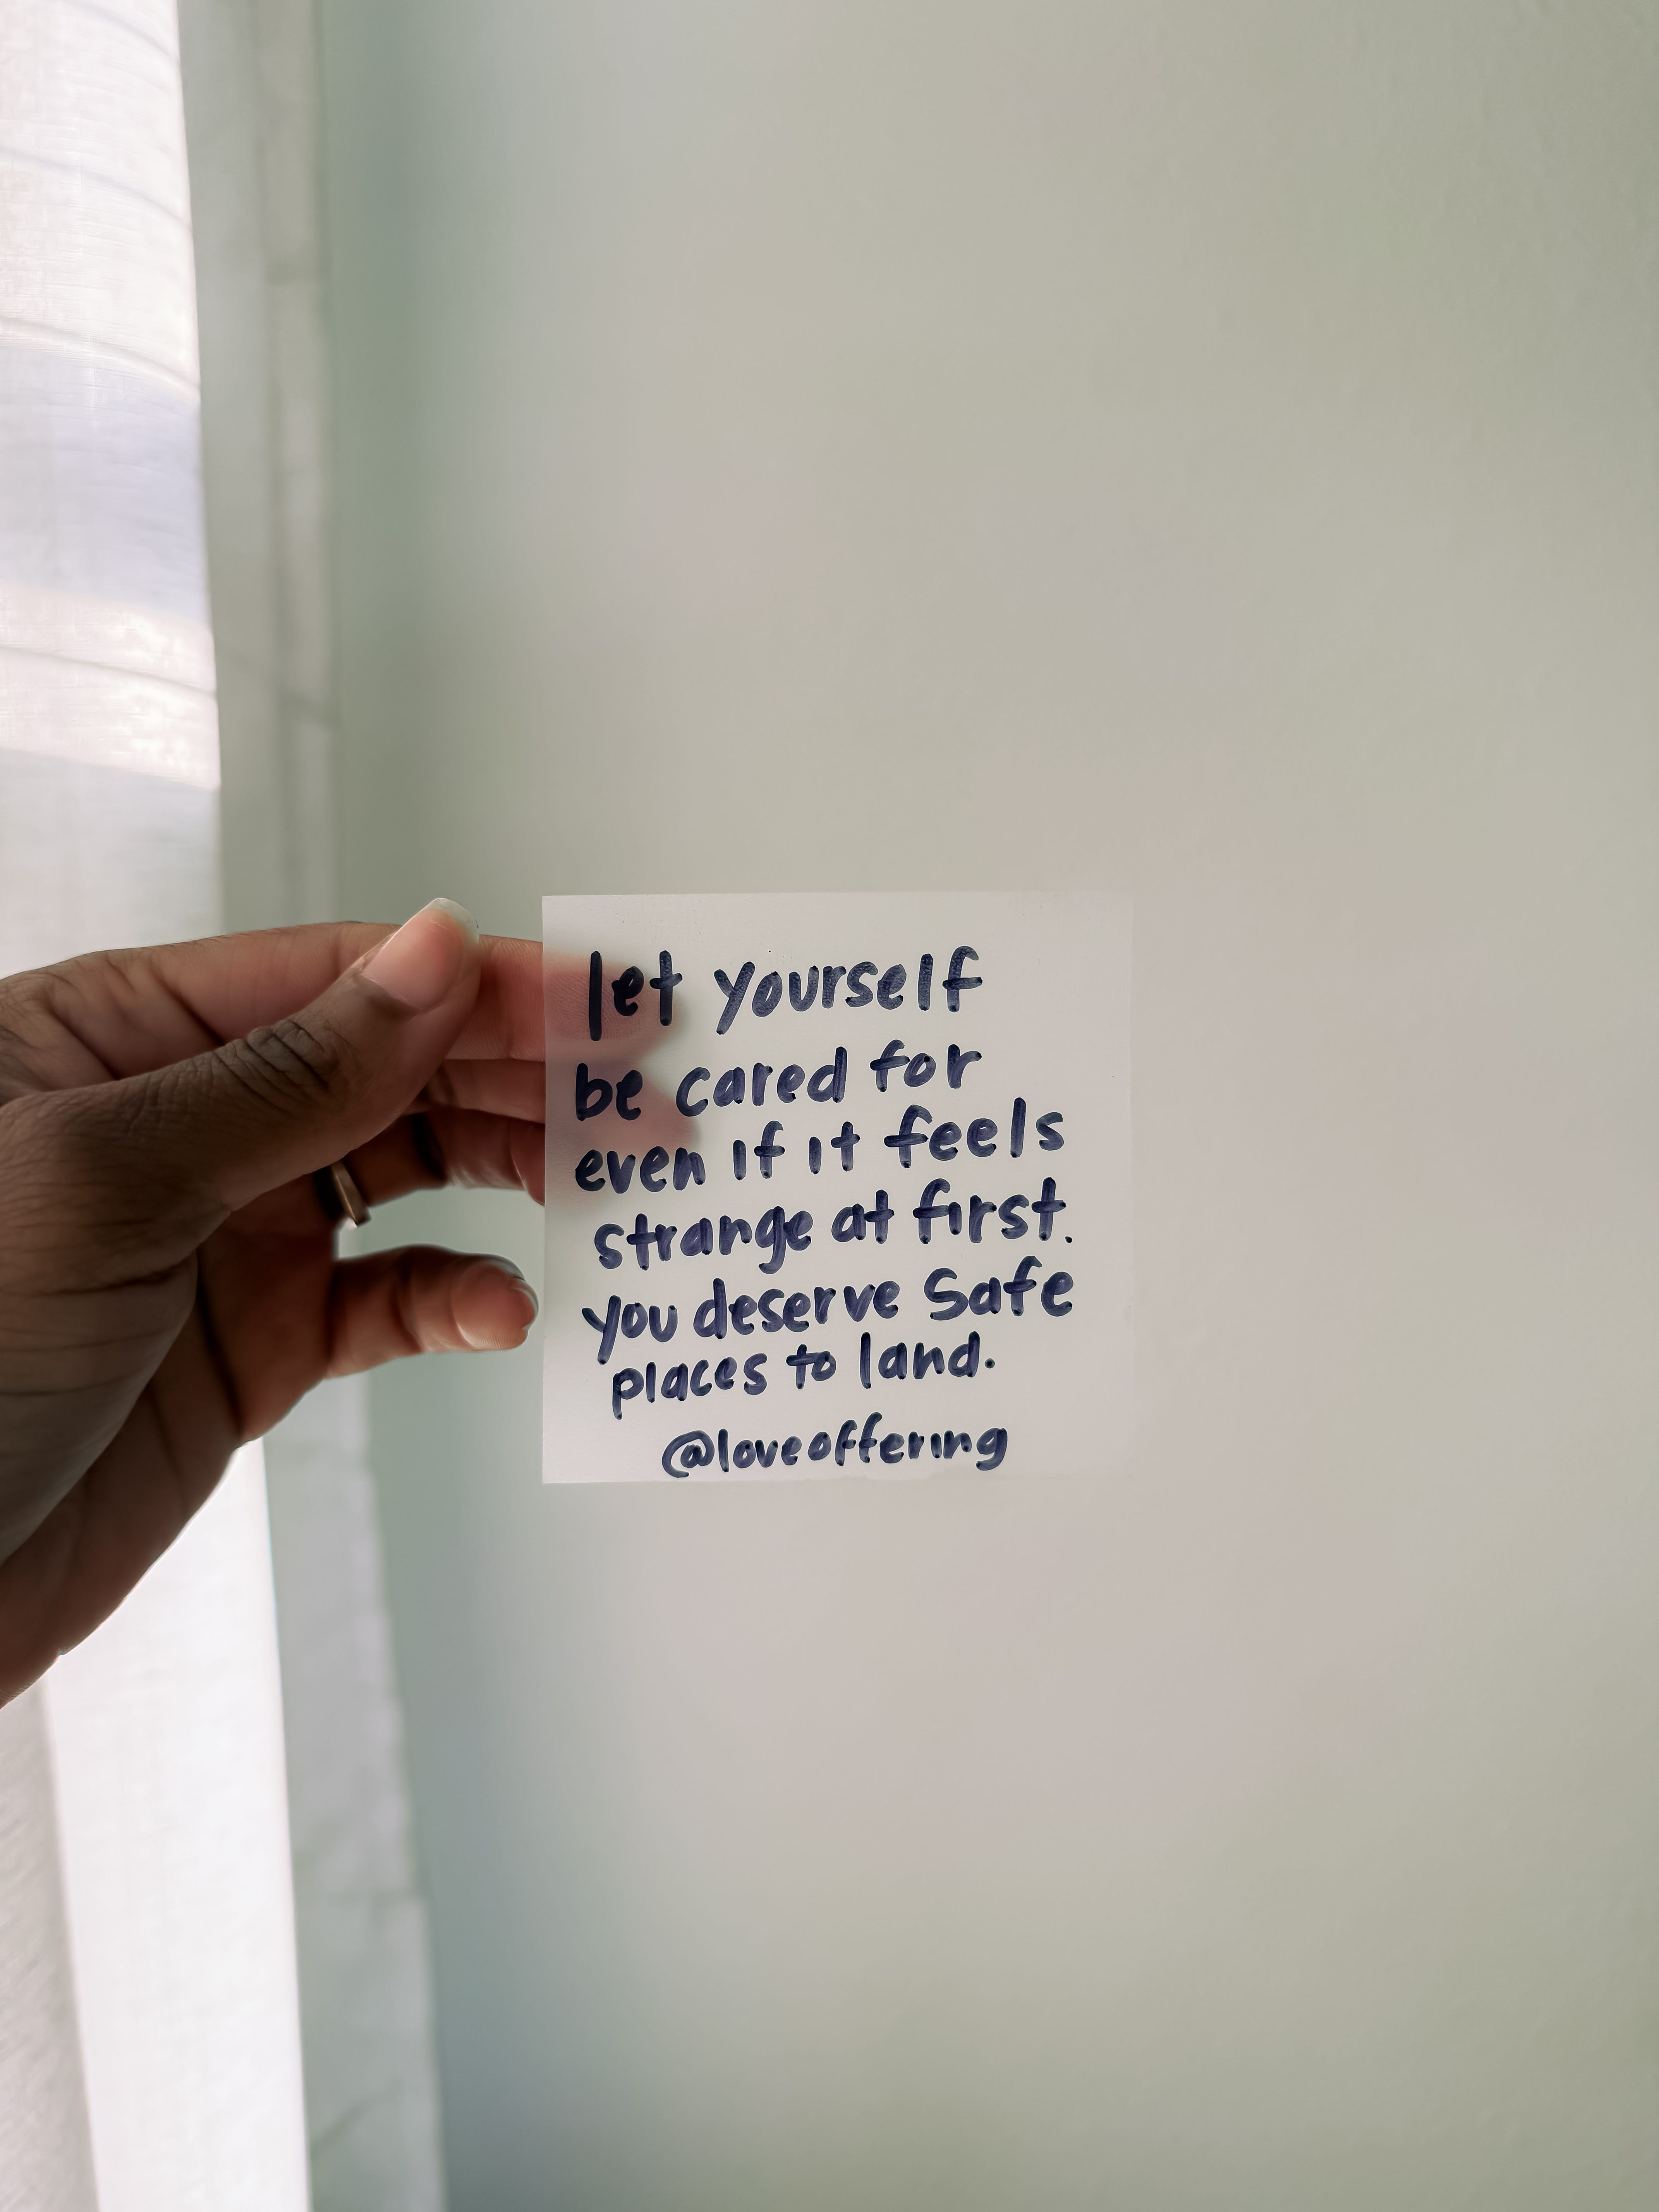 let yourself
be cared for
even if it feels
strange at first.
you deserve safe
places to land.
@loveoffering